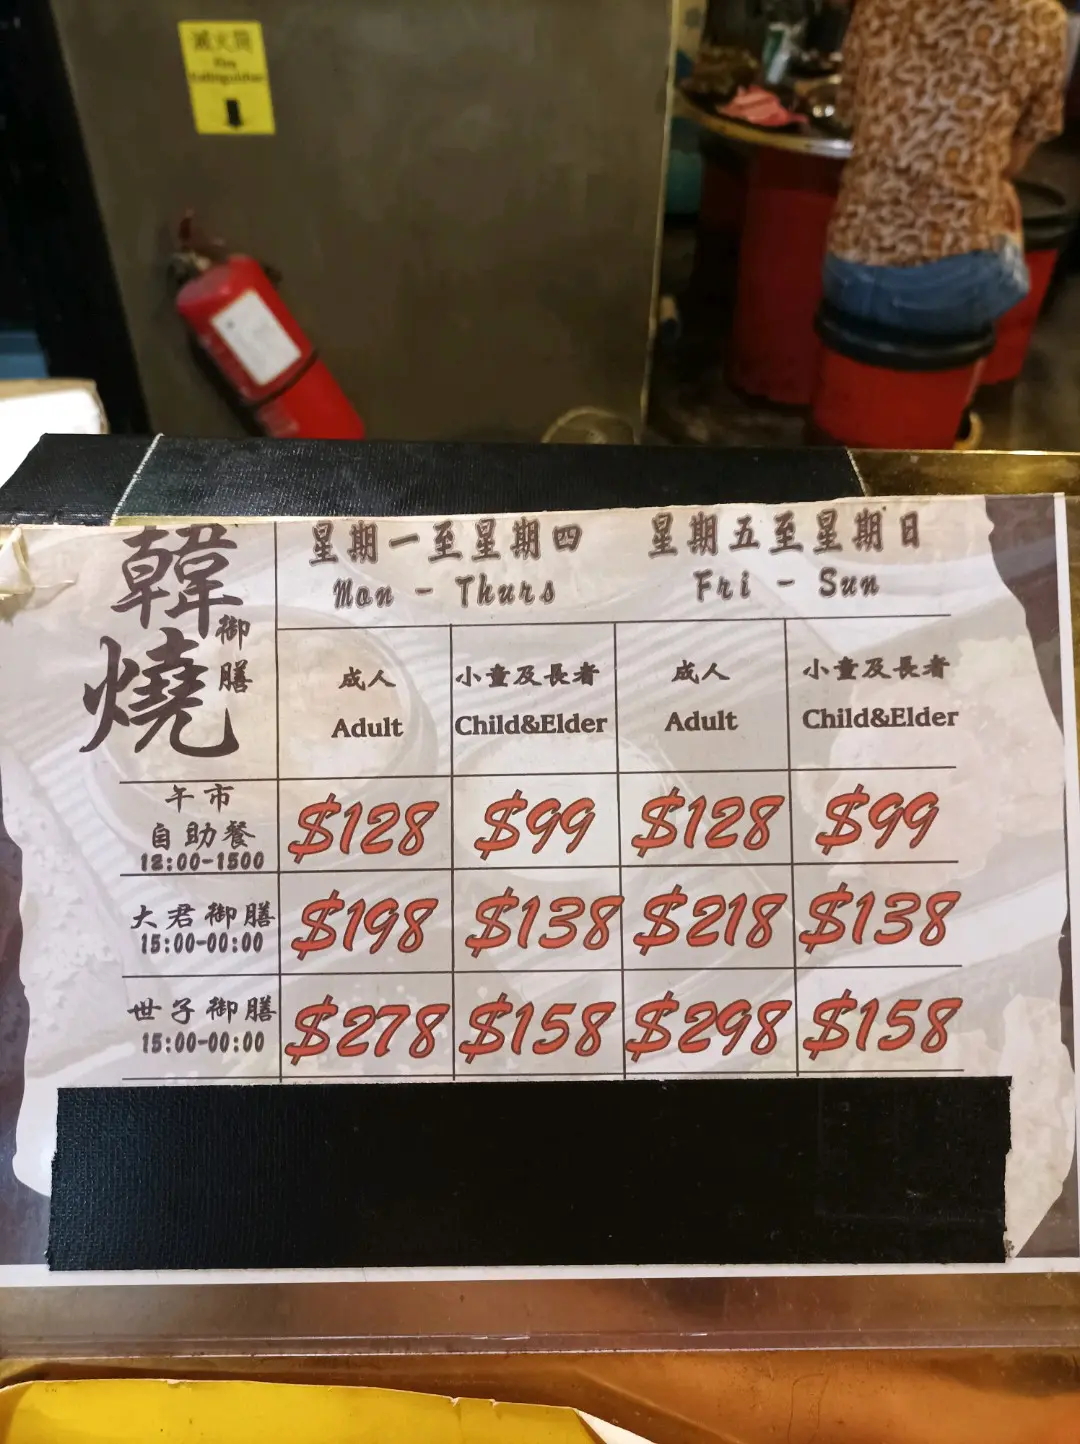 滅火筒
Fire
Extinguisher
韓燒
御膳
星期一至星期四
Mon - Thurs
星期五至星期日
Fri - Sun
成人
Adult
小童及長者
Child&Elder
成人
Adult
小童及長者
Child&Elder
午市
自助餐
12:00-1500
$128
$99
$128
$99
大君御膳
15:00-00:00
$198
$138
$218
$138
世子御膳
15:00-00:00
$278
$158
$298
$158